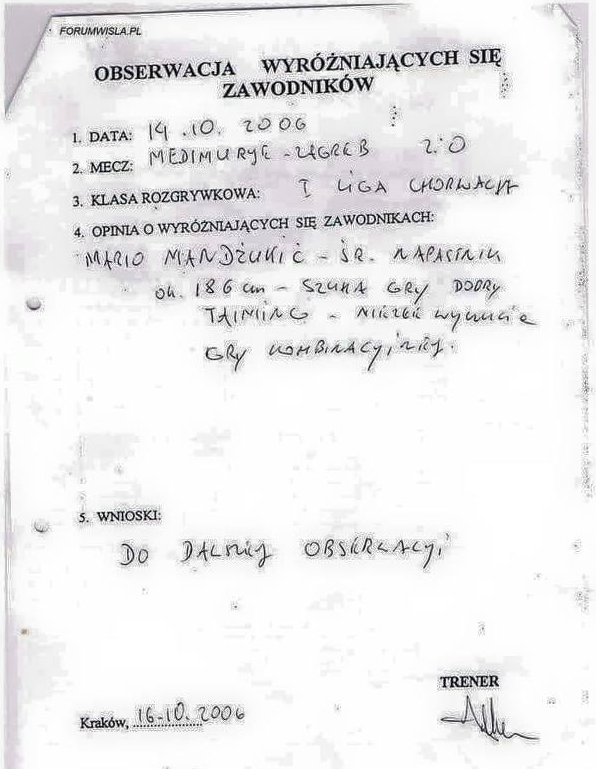 FORUMWISLA.PL
OBSERWACJA WYRÓŻNIAJĄCYCH SIĘ
ZAWODNIKÓW
1. DATA: 14.10. 2006
2. MECZ: MEDIMURYE - ZAGREB 2:0
3. KLASA ROZGRYWKOWA: I LIGA CHORWACJA
4. OPINIA O WYRÓŻNIAJĄCYCH SIĘ ZAWODNIKACH:
MARIO MANDŻUKIĆ - ŚR. NAPASTNIK
ok. 186 cm - SZUKA GRY DOBRY
TAIMING - wyczucie
GRY KOMBINACYJNEJ.
5. WNIOSKI:
DO DALSZEJ OBSERWACJI
TRENER
Kraków, 16-10.2006